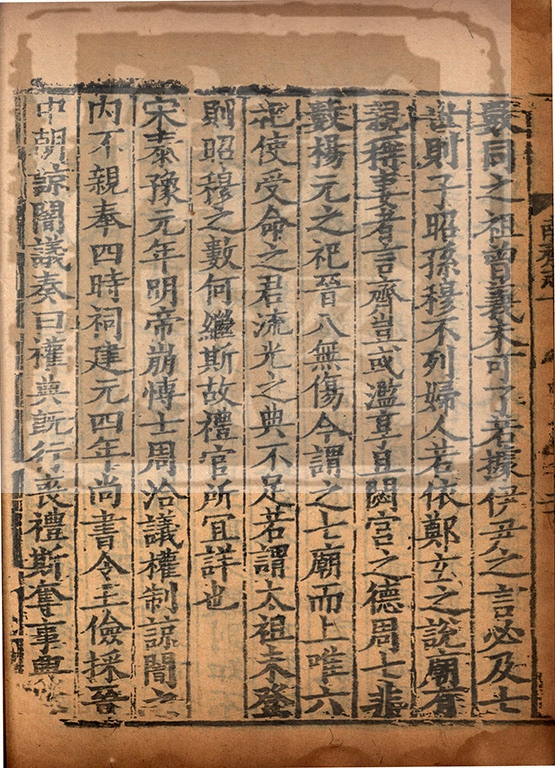 數同之祖曾義未可了若據伊尹之言必及七
世則子昭孫穆不列婦人若依鄭玄之說廟有
親稱妻者言齊豈或濫享且閟宮之德周七非
數楊元之祀晉八無傷今謂之七廟而上唯六
祀使受命之君流光之典不足若謂太祖未登
則昭穆之數何繼斯故禮官所宜詳也
宋泰豫元年明帝崩博士周洽議權制諒闇之
內不親奉四時祠建元四年尚書令王儉採晉
中朝諒闇議奏曰權典既行喪禮斯奪事興